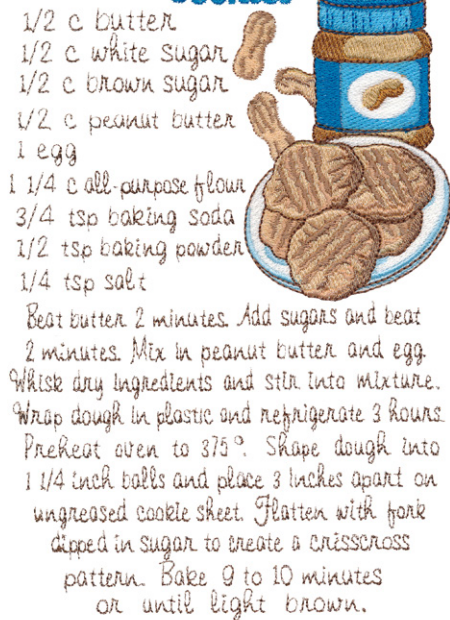 1/2 c butter
1/2 c white sugar
1/2 c brown sugar
1/2 c peanut butter
1 egg
1 1/4 c all-purpose flour
3/4 tsp baking soda
1/2 tsp baking powder
1/4 tsp salt
Beat butter 2 minutes. Add sugars and beat
2 minutes. Mix in peanut butter and egg.
Whisk dry ingredients and stir into mixture.
Wrap dough in plastic and refrigerate 3 hours.
Preheat oven to 375°. Shape dough into
1 1/4 inch balls and place 3 inches apart on
ungreased cookie sheet. Flatten with fork
dipped in sugar to create a crisscross
pattern. Bake 9 to 10 minutes
or until light brown.